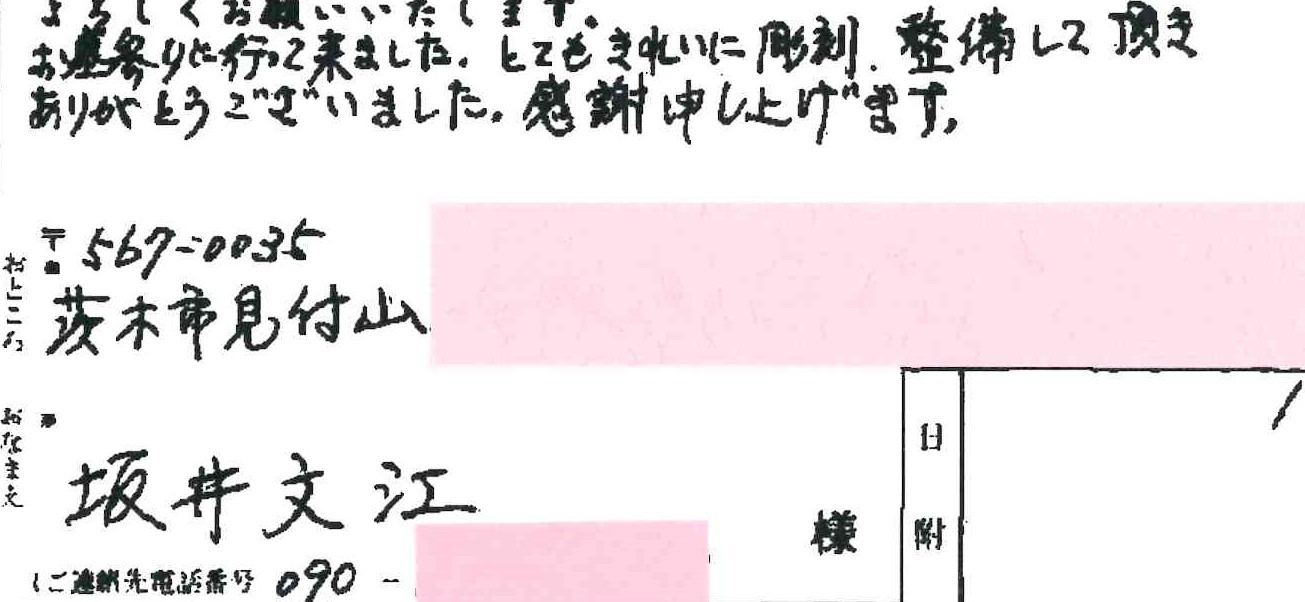 よろしくお願いいたします。
お墓参りに行って来ました。とてもきれいに彫刻、整備して頂き
ありがとうございました。感謝申し上げます。
〒567-0035
おところ
茨木市見付山
おなまえ
坂井文江
様
日附
(ご連絡先電話番号 090 -